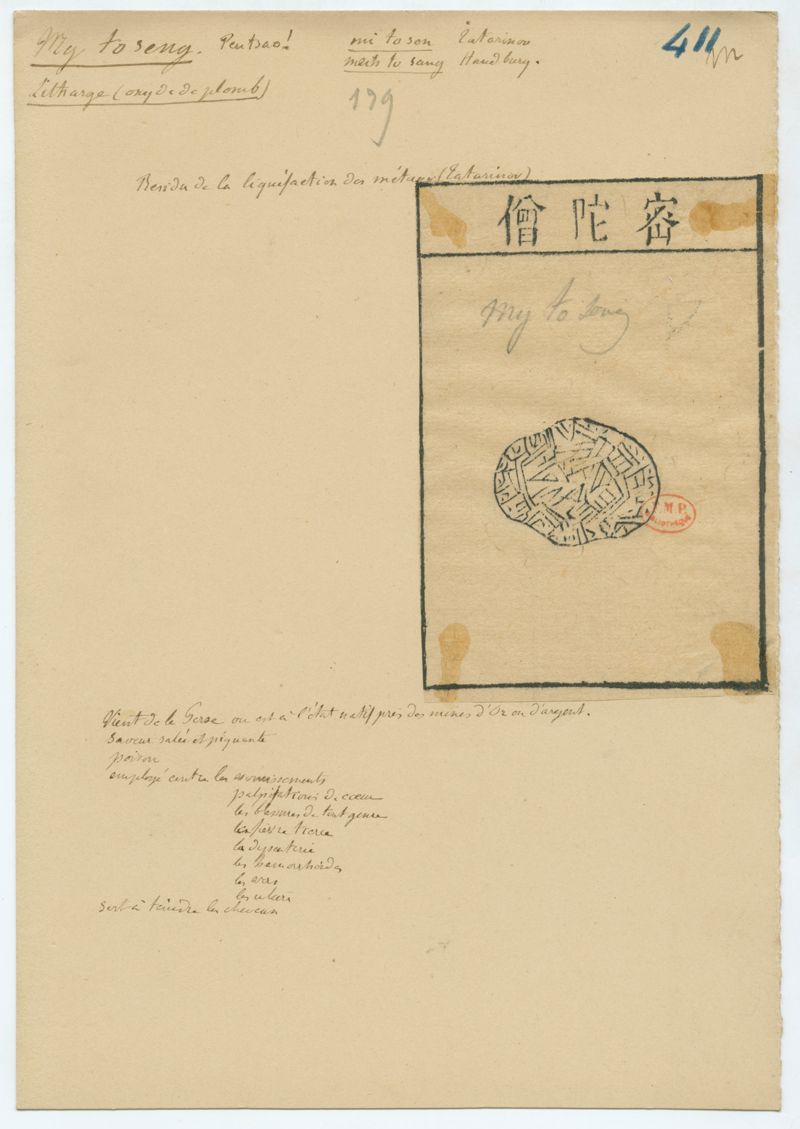 My to seng. Pentsao! mi to son Tatarinov 411
meih to sang Handbury.
Litharge (oxyde de plomb)
179
Residu de la liquéfaction des métaux (Tatarinov)
僧陀密
My to seng
M.P.
Vient de la Perse ou est à l'état natif près des mines d'Or ou d'argent.
saveur salée et piquante
poison
employé contre les vomissements
palpitations de coeur
les blessures de tout genre
la fièvre tierce
la dysenterie
les hemorrhoïdes
les vers
les ulcères
sert à teindre les cheveux